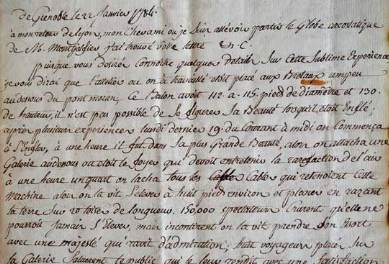 de Grenoble le 22 Janvier 1784.
a mon retour de Lyon, mon Cher ami ou je suis allé voir partir le Globe aerostatique
de M. Montgolfier j'ai trouvé votre lettre
puisque vous desirez connoitre quelques details sur Cette Sublime Experience
je vous dirai que l'attelier ou on a travaillé est placé aux Brotaux un peu
au dessus du pont morand, Ce Balon avoit 112 a 115 pieds de diametre et 130
de hauteur, il n'est pas possible de se figurer Sa Beauté lorsqu'il etoit Enflé
après plusieurs experiences lundi dernier 19 du Courant a midi on Commença
a l'Enfler, a une heure il fut dans sa plus Grande Beauté, alors on attacha une
Galerie au dessous ou etoit le foyer qui devoit entretenir la rarefaction de l'air
a une heure un quart on lacha tous les Cables qui retenoient Cette
Machine, alors on la vit S'elever a huit pieds environ et planer en razant
la terre Sur 20 toises de longueur, 150,000 spectateurs Crurent qu'elle ne
pourroit jamais S'elever, mais incontinent on la vit prendre Son Essor
avec une majesté qui ravit d'admiration; huit voyageurs placés Sur
la Galerie Saluerent le public qui le leur rendit avec une Satisfaction